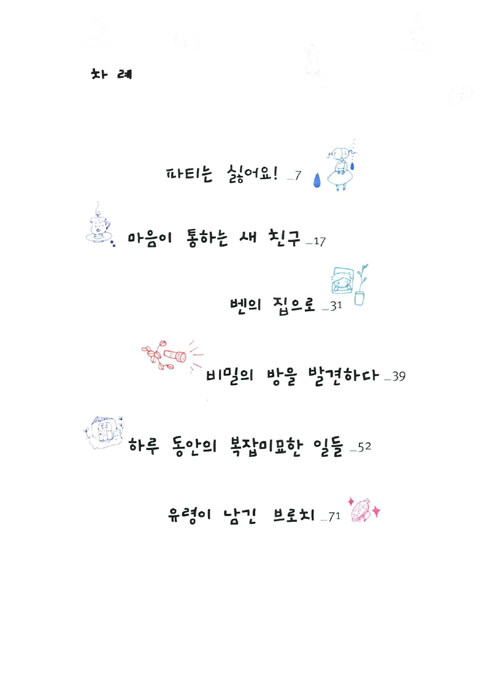 차 례
파티는 싫어요! _7
마음이 통하는 새 친구 _17
벤의 집으로 _31
비밀의 방을 발견하다 _39
하루 동안의 복잡미묘한 일들 _52
유령이 남긴 브로치 _71